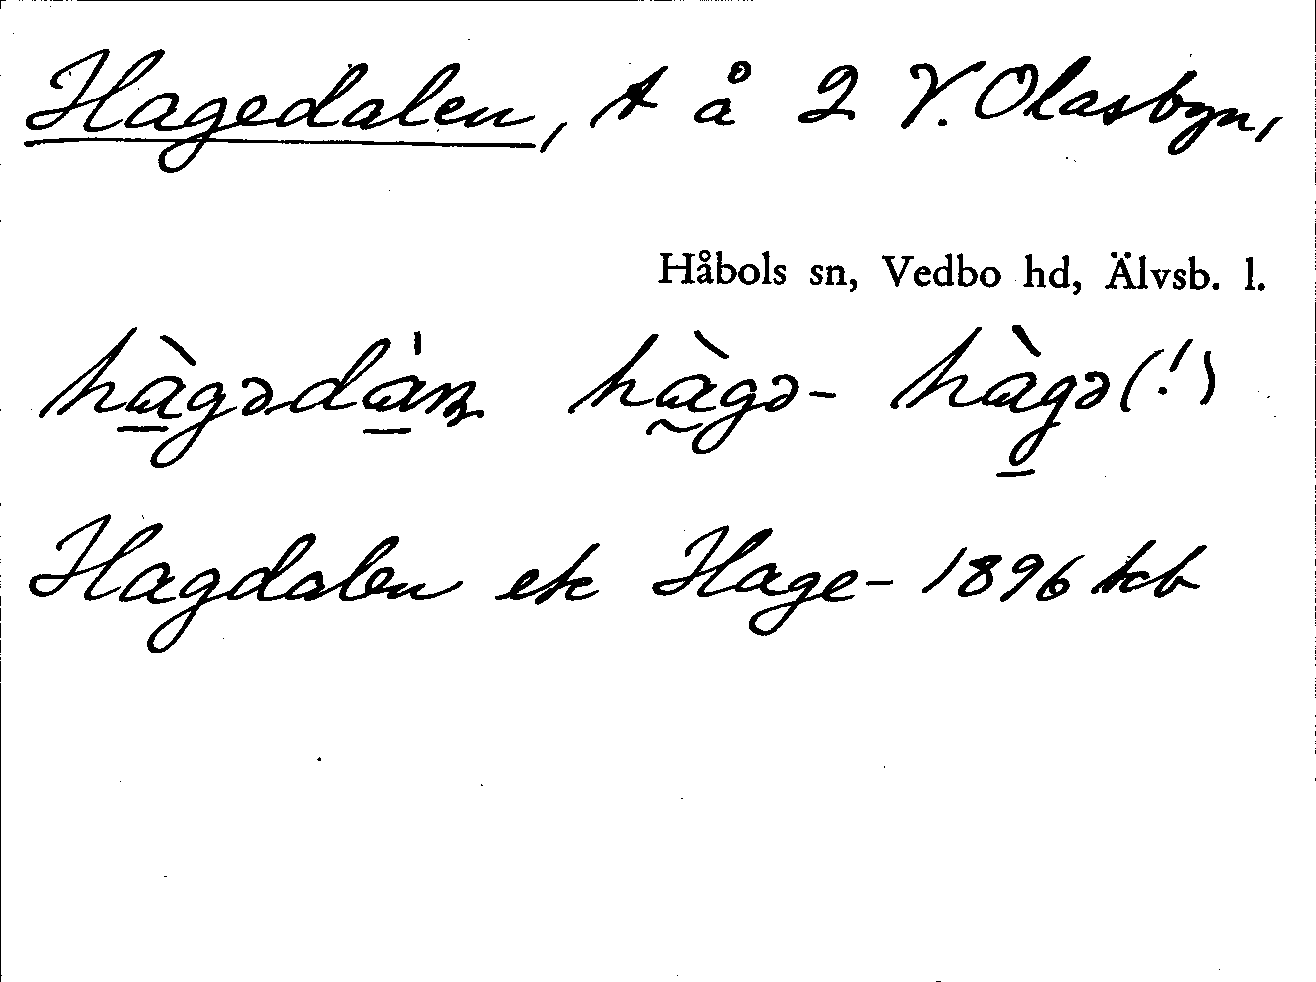 Hagedalen, t å 2 V. Olasbyn,
Håbols sn, Vedbo hd, Älvsb. l.
hà̱gəda̱'ɳ hà̰gə- hàg̱ə(!)
Hagdalen etc Hage- 1896 kb